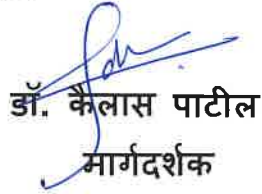 डॉ. कैलास पाटील
मार्गदर्शक